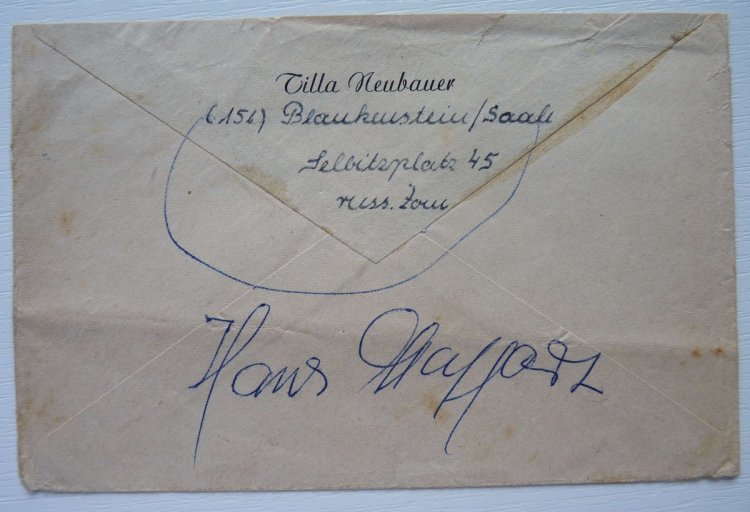 Tilla Neubauer
(15b) Blankenstein/Saale
Selbitzplatz 45
russ. Zone
Hans